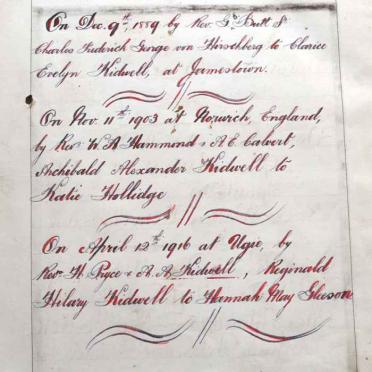 On Dec. 9th 1889 by Rev. Gd. Butt Sr
Charles Frederick George von Hirschberg to Clarice
Evelyn Kidwell, at Jamestown.
On Nov. 11th 1903 at Norwich, England,
by Rev. W. A. Hammond & A. E. Calvert,
Archibald Alexander Kidwell to
Katie Hollidge
On April 12th 1916 at Ugie, by
Rev. H. Pryce & A. A. Kidwell, Reginald
Hilary Kidwell to Hannah May Gleeson